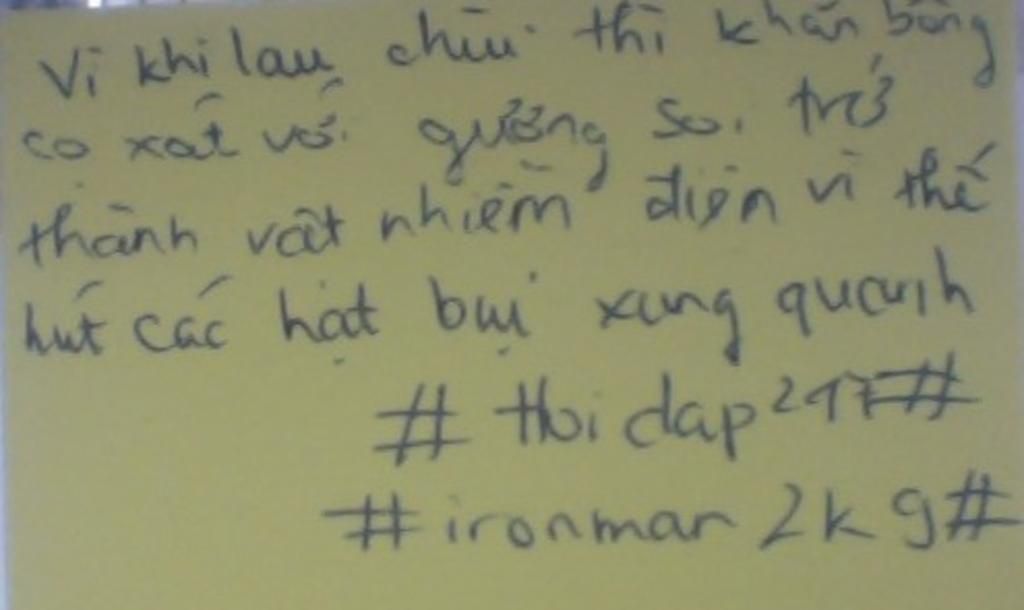 Vì khi lau chùi thì khăn bông
cọ xát với gương soi trở
thành vật nhiễm điện vì thế
hút các hạt bụi xung quanh
# Hoidap247#
#ironman2k9#